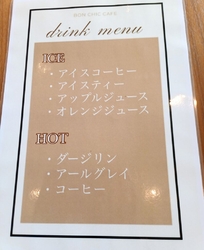 drink menu
ICE
・アイスコーヒー
・アイスティー
・アップルジュース
・オレンジジュース
HOT
・ダージリン
・アールグレイ
・コーヒー